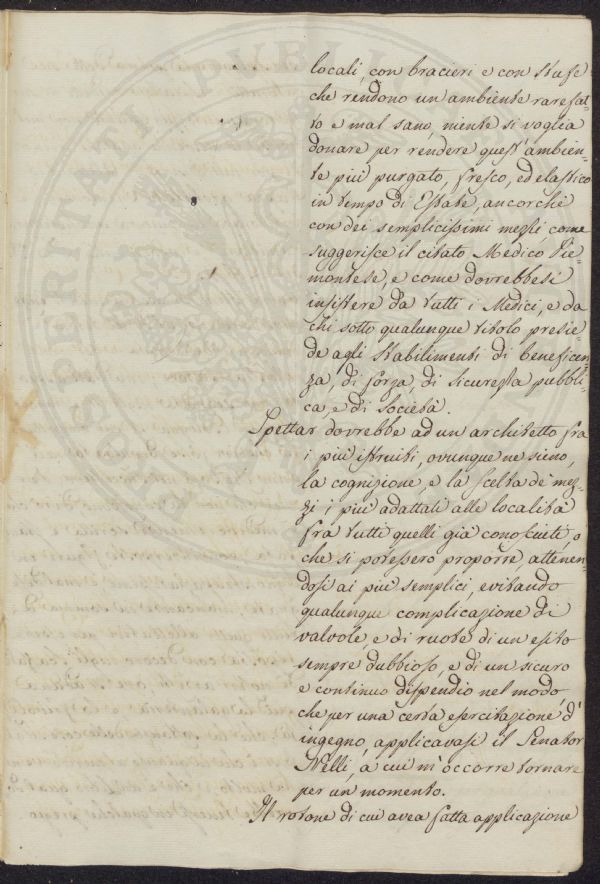 locali, con bracieri e con stufe
che rendono un ambiente rarefat-
to e mal sano, niente si voglia
donare per rendere quest'ambien-
te più purgato, fresco, ed elastico
in tempo di Estate, ancorchè
con dei semplicissimi mezzi, come
suggerisce il citato Medico Pie-
montese, e come dovrebbesi
insistere da tutti i Medici, e da
chi sotto qualunque titolo presie-
de agli stabilimenti di beneficen-
za, di forza, di sicurezza pubbli-
ca, e di Società.
Spettar dovrebbe ad un architetto fra
i più istruiti, ovunque ne sieno,
la cognizione, e la scelta de' mez-
zi i più adattati alle località
fra tutti quelli già conosciuti, o
che si potessero proporre, attenen-
dosi ai più semplici, evitando
qualunque complicazione di
valvole, e di ruote di un esito
sempre dubbioso, e di un sicuro
e continuo dispendio nel modo,
che per una certa esercitazione d'
ingegno, applicavasi il Senator
Nelli, a cui m'occorre tornare
per un momento.
Il rotone di cui avea fatta applicazione